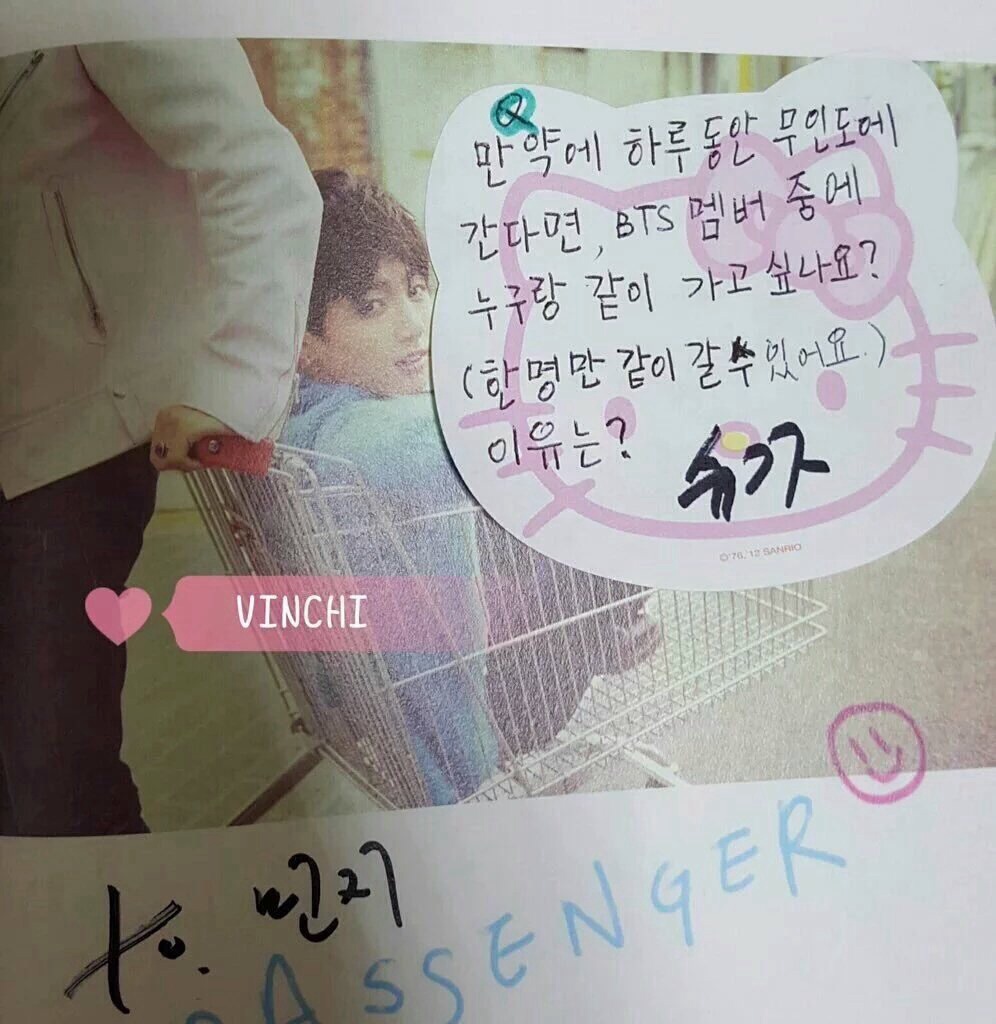 Q
만약에 하루동안 무인도에
간다면, BTS 멤버 중에
누구랑 같이 가고 싶나요?
(한명만 같이 갈 수 있어요.)
이유는?
슈가
©'76,'12 SANRIO
VINCHI
to. 민지
PASSENGER